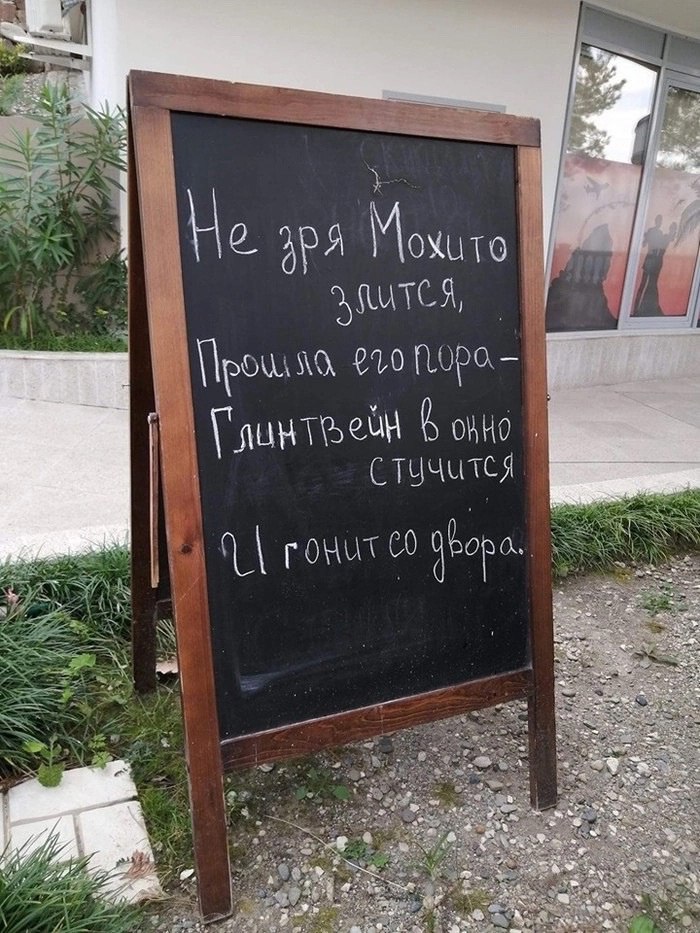 Не зря Мохито
злится,
Прошла его пора –
Глинтвейн в окно
стучится
И гонит со двора.